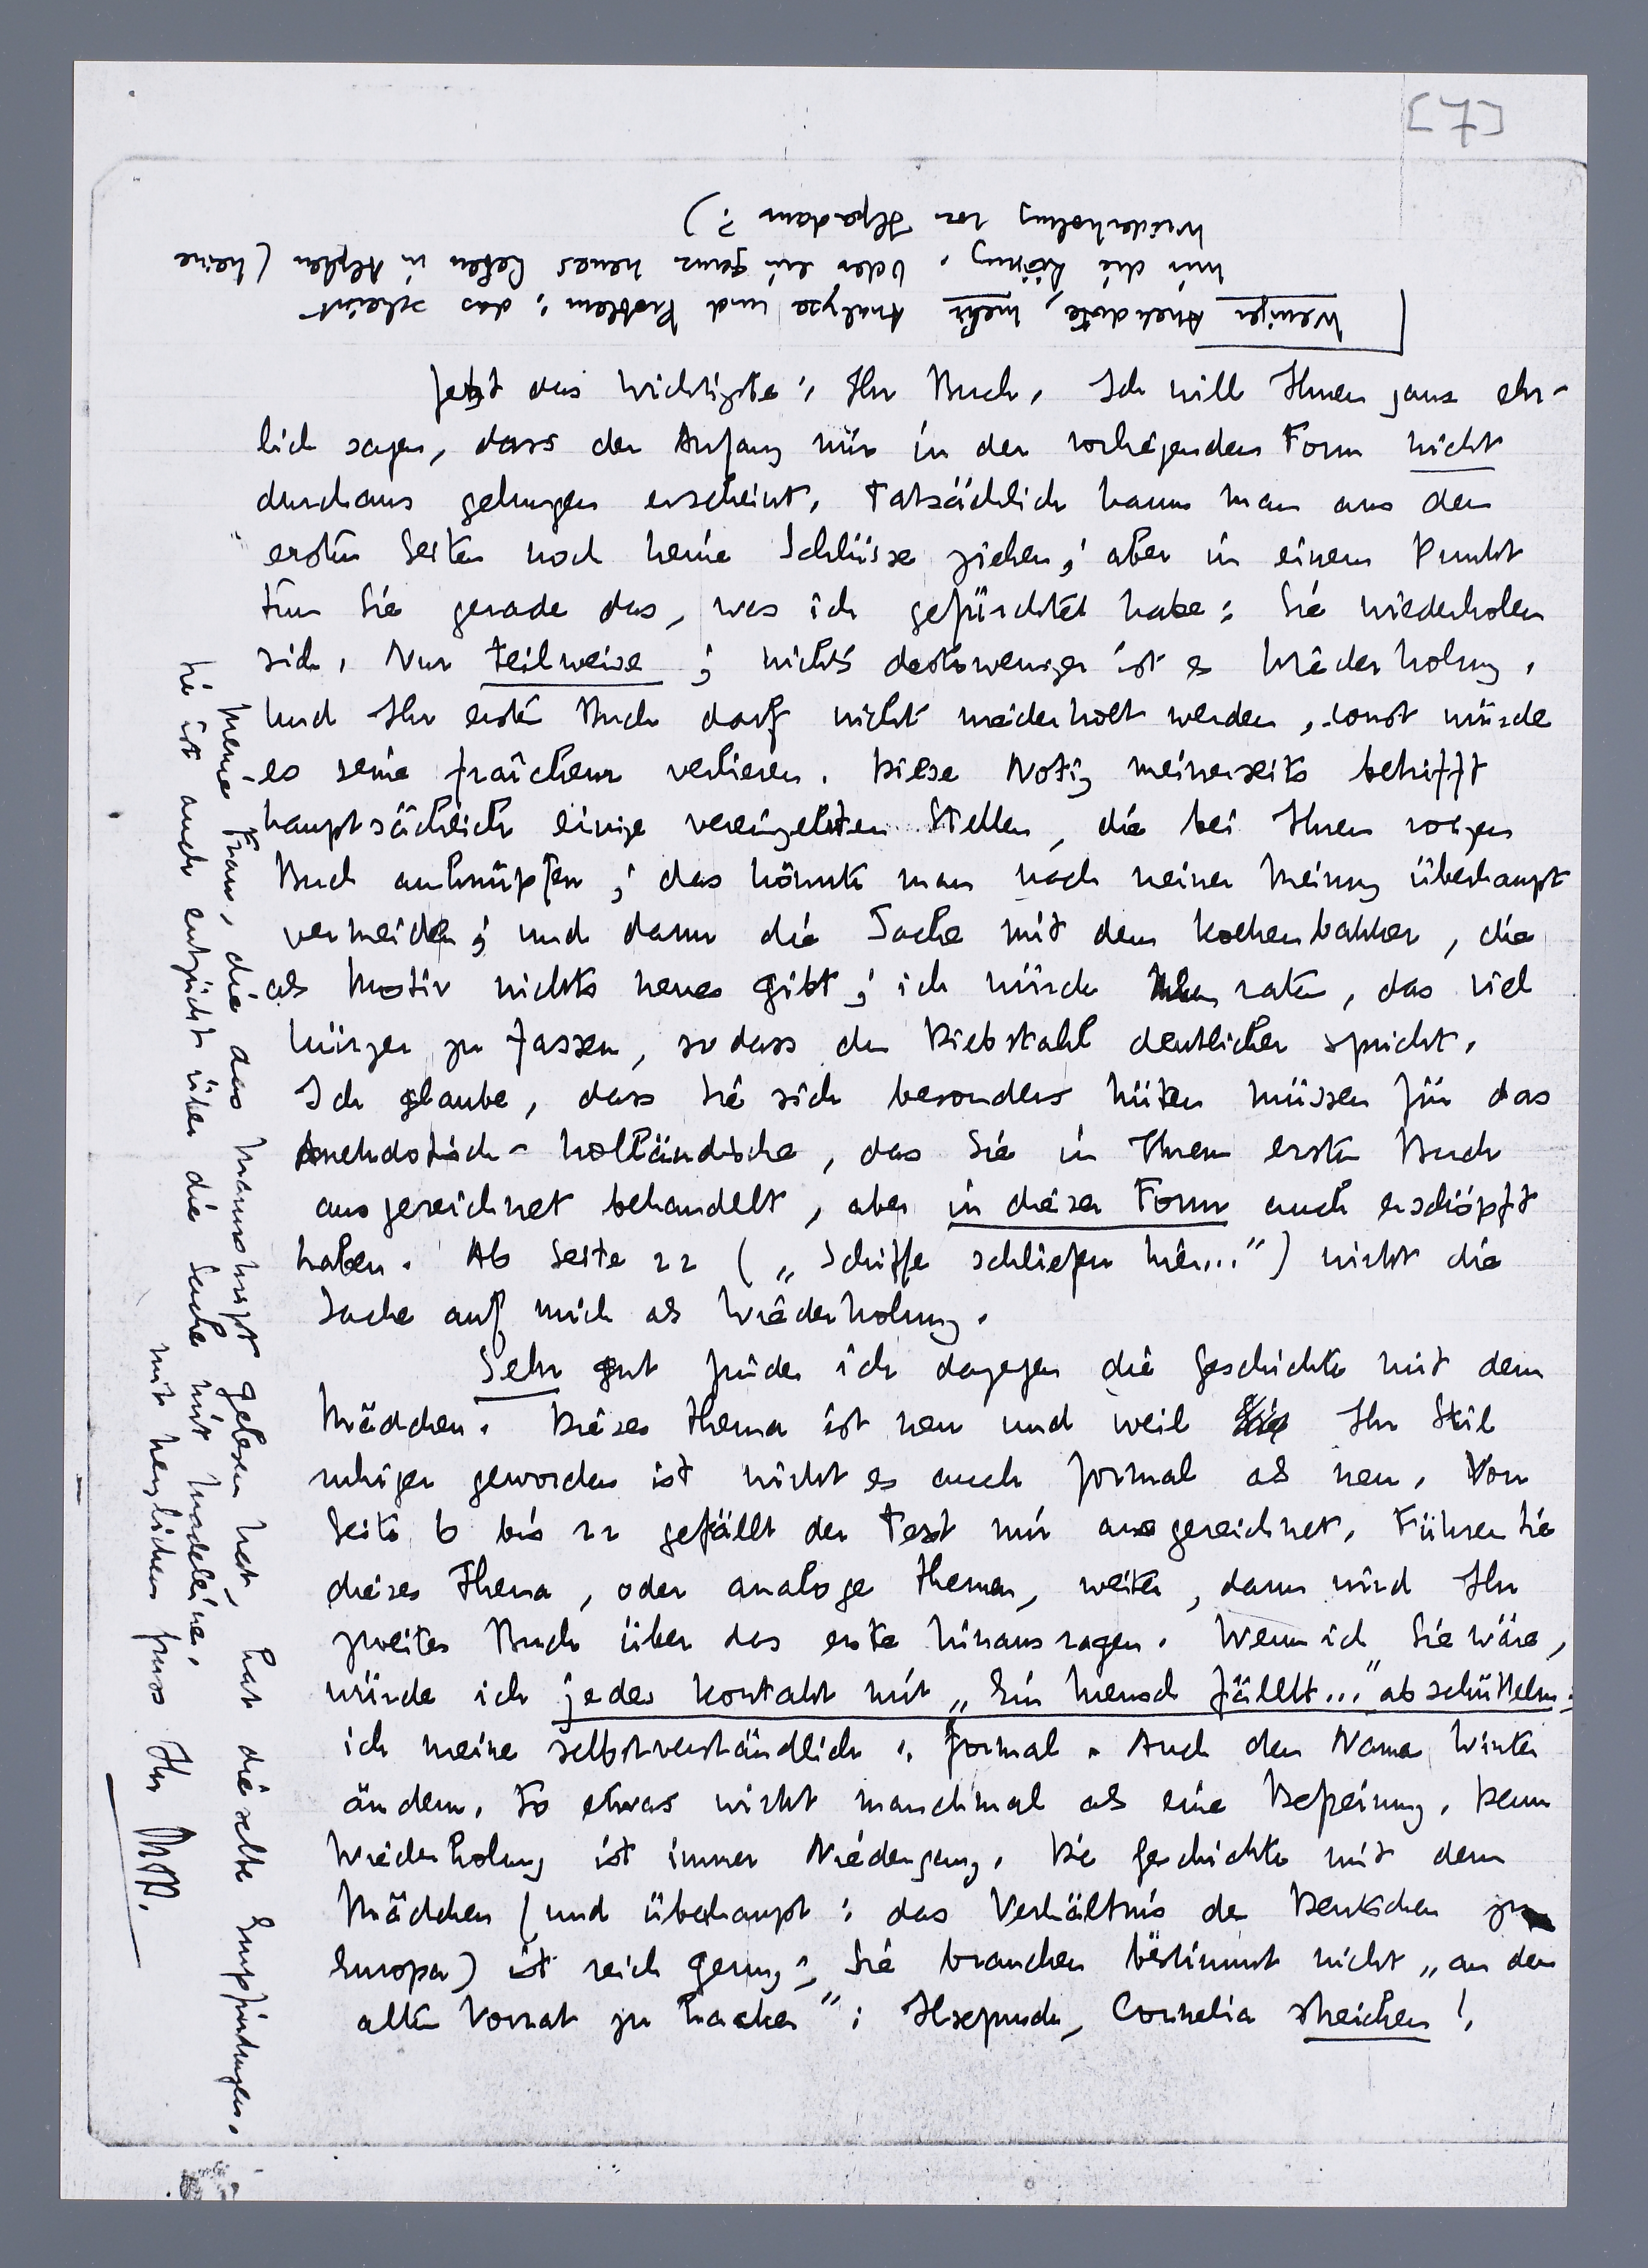 [7]
Jetzt das Wichtigste: Ihr Buch. Ich will Ihnen ganz ehr-
lich sagen, dass der Anfang mir in der vorliegenden Form nicht
durchaus gelungen erscheint. Tatsächlich kann man aus den
ersten Seiten noch keine Schlüsse ziehen; aber in einem Punkt
tun Sie gerade das, was ich gefürchtet habe: Sie wiederholen
sich. Nur teilweise; nichts destoweniger ist es Wiederholung.
Und Ihr erstes Buch darf nicht wiederholt werden, sonst würde
es seine fraîcheur verlieren. Diese Notiz meinerseits betrifft
hauptsächlich einige vereinzelten Stellen, die bei Ihrem vorigen
Buch anknüpfen; das könnte man nach meiner Meinung überhaupt
vermeiden; und dann die Sache mit dem koekenbakker, die
als Motiv nichts neues gibt; ich würde Ihnen raten, das viel
kürzer zu fassen, sodass der Diebstahl deutlicher spricht.
Ich glaube, dass Sie sich besonders hüten müssen für das
Anekdotisch-holländische, das Sie in Ihrem ersten Buch
ausgezeichnet behandelt, aber in dieser Form auch erschöpft
haben. Ab Seite 22 („Schiffe schliefen hier...") wirkt die
Sache auf mich als Wiederholung.
Sehr gut finde ich dagegen die Geschichte mit dem
Mädchen. Dieses Thema ist neu und weil Ihr Stil
ruhiger geworden ist wirkt es auch formal als neu. Von
Seite 6 bis 22 gefällt der Text mir ausgezeichnet. Führen Sie
dieses Thema, oder analoge Themen, weiter, dann wird Ihr
zweites Buch über das erste hinausragen. Wenn ich Sie wäre,
würde ich jeden Kontakt mit „Ein Mensch fällt..." abschütteln:
ich meine selbstverständlich: formal. Auch den Namen Winter
ändern. So etwas wirkt manchmal als eine Befreiung. Denn
Wiederholung ist immer Niedergang. Die Geschichte mit dem
Mädchen (und überhaupt: das Verhältnis der Deutschen zu
Europa) ist reich genug; Sie brauchen bestimmt nicht „an den
alten Vorrat zu": Cornelia streichen!
Weniger Anekdote, mehr Analyse und Problem: das scheint
mir die Lösung. Oder ein ganz neues Leben in Alphen (keine
Wiederholung von Ilpendam?)
Meine Frau, die das Manuskript gelesen hat, hat dieselbe Empfindungen.
Sie ist auch entzückt über die Sache mit Madeleine.
Mit herzlichem Gruss Ihr